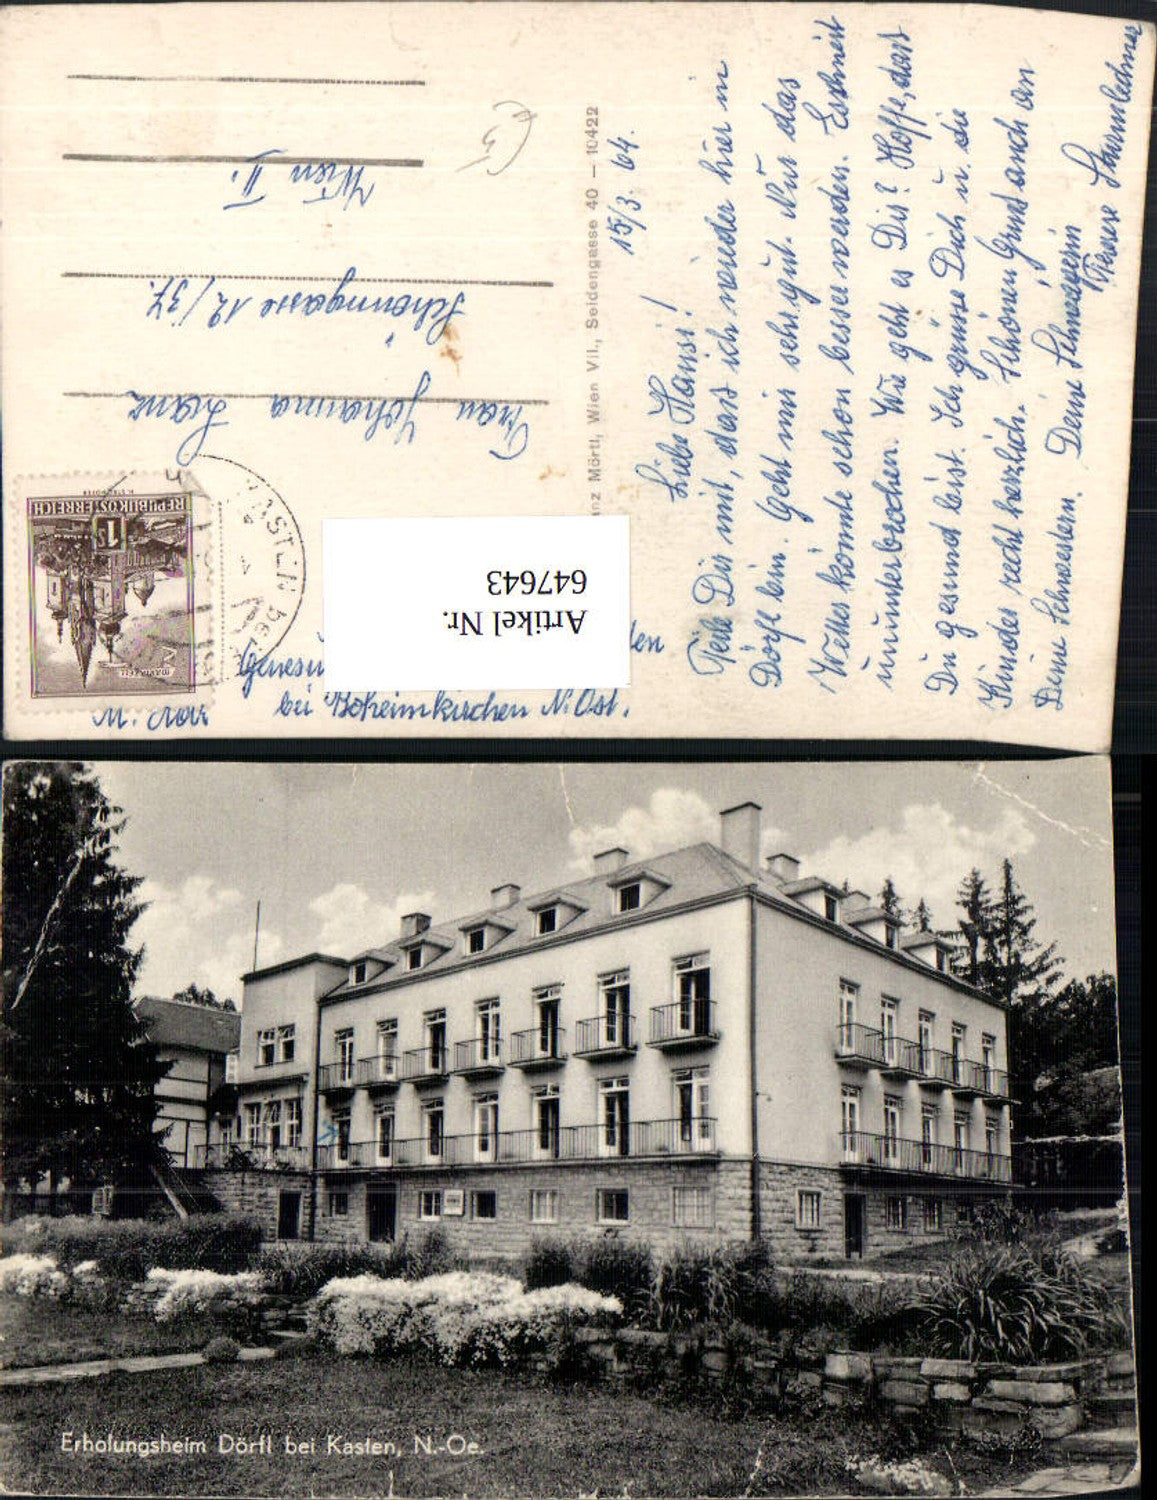 15/3. 64.
Liebe Hansi!
Teile Dir mit, dass ich wieder hier in
Dörfl bin. Geht mir sehr gut. Nur das
Wetter könnte schon besser werden. Es schneit
ununterbrochen. Wie geht es Dir? Hoffe, dass
Du gesund bist. Ich grüsse Dich u. die
Kinder recht herzlich. Schönen Gruss auch an
Deine Schwestern. Deine Schwägerin
Therese Sturmlechner
Franz Mörtl, Wien VII., Seidengasse 40 — 10422
Frau Johanna
Schöngasse 12/37.
Wien II.
€5
REPUBLIK ÖSTERREICH
1S
MARIAZELL
KASTEN bei
Artikel Nr.
647643
Genesun
den
bei Böheimkirchen N. Öst.
Erholungsheim Dörfl bei Kasten, N.-Oe.